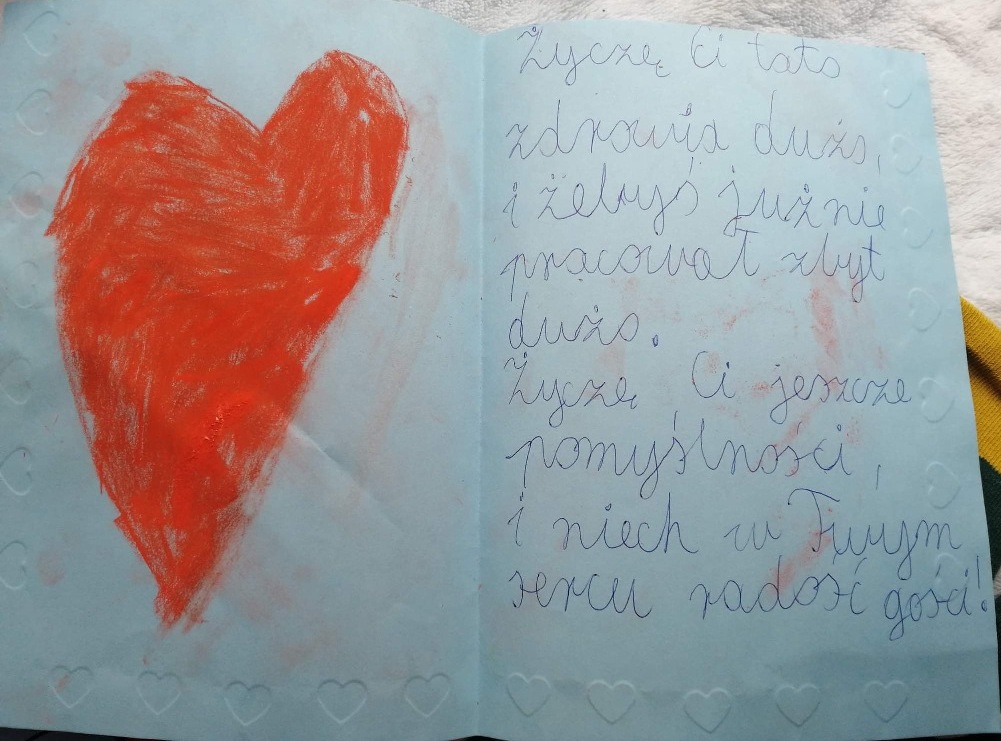 Życzę Ci tato
zdrowia dużo,
i żebyś już nie
pracował zbyt
dużo.
Życzę Ci jeszcze
pomyślności,
i niech w Twym
sercu radość gości!